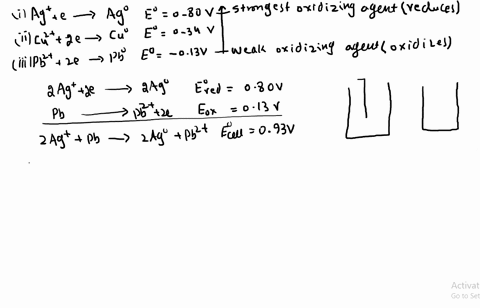 (i) Ag⁺ + e → Ag⁰ E⁰ = 0.80 V strongest oxidizing agent (reduces)
(ii) Cu²⁺ + 2e → Cu⁰ E⁰ = 0.34 V
(iii) Pb²⁺ + 2e → Pb⁰ E⁰ = -0.13V weak oxidizing agent (oxidizes)
2Ag⁺ + 2e → 2Ag⁰ E⁰red = 0.80V
Pb → Pb²⁺ + 2e E⁰ox = 0.13 V
2Ag⁺ + Pb → 2Ag⁰ + Pb²⁺ E⁰cell = 0.93V
Activat
Go to Set